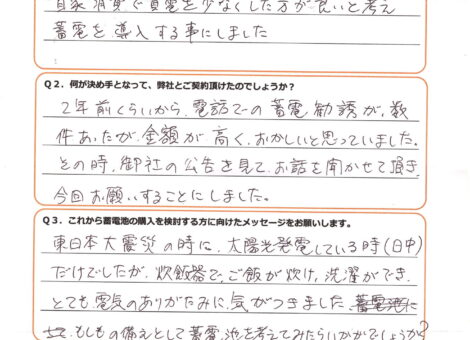 自家消費で買電を少なくした方が良いと考え
蓄電を導入する事にしました
Q2．何が決め手となって、弊社とご契約頂けたのでしょうか？
2年前くらいから、電話での蓄電勧誘が、数
件あったが、金額が高く、おかしいと思っていました。
その時、御社の公告を見て、お話を聞かせて頂き、
今回お願いすることにしました。
Q3．これから蓄電池の購入を検討する方に向けたメッセージをお願いします。
東日本大震災の時に、太陽光発電している時(日中)
だけでしたが、炊飯器で、ご飯が炊け、洗濯ができ、
とても、電気のありがたみに、気がつきました、
もしもの備えとして蓄電池を考えてみたらいかがでしょうか？